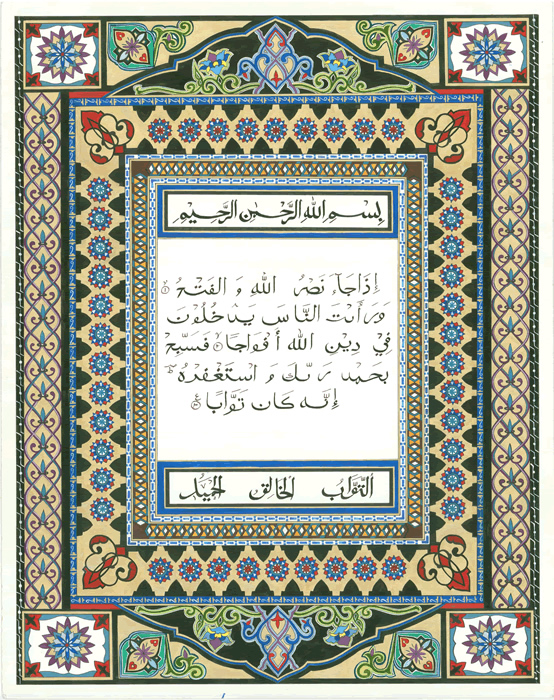 بسم الله الرحمن الرحيم
إذا جاء نصر الله و الفتح
ورأيت الناس يدخلون
في دين الله أفواجا فسبح
بحمد ربك و استغفره
إنه كان توابا
التواب الخالق الحميد